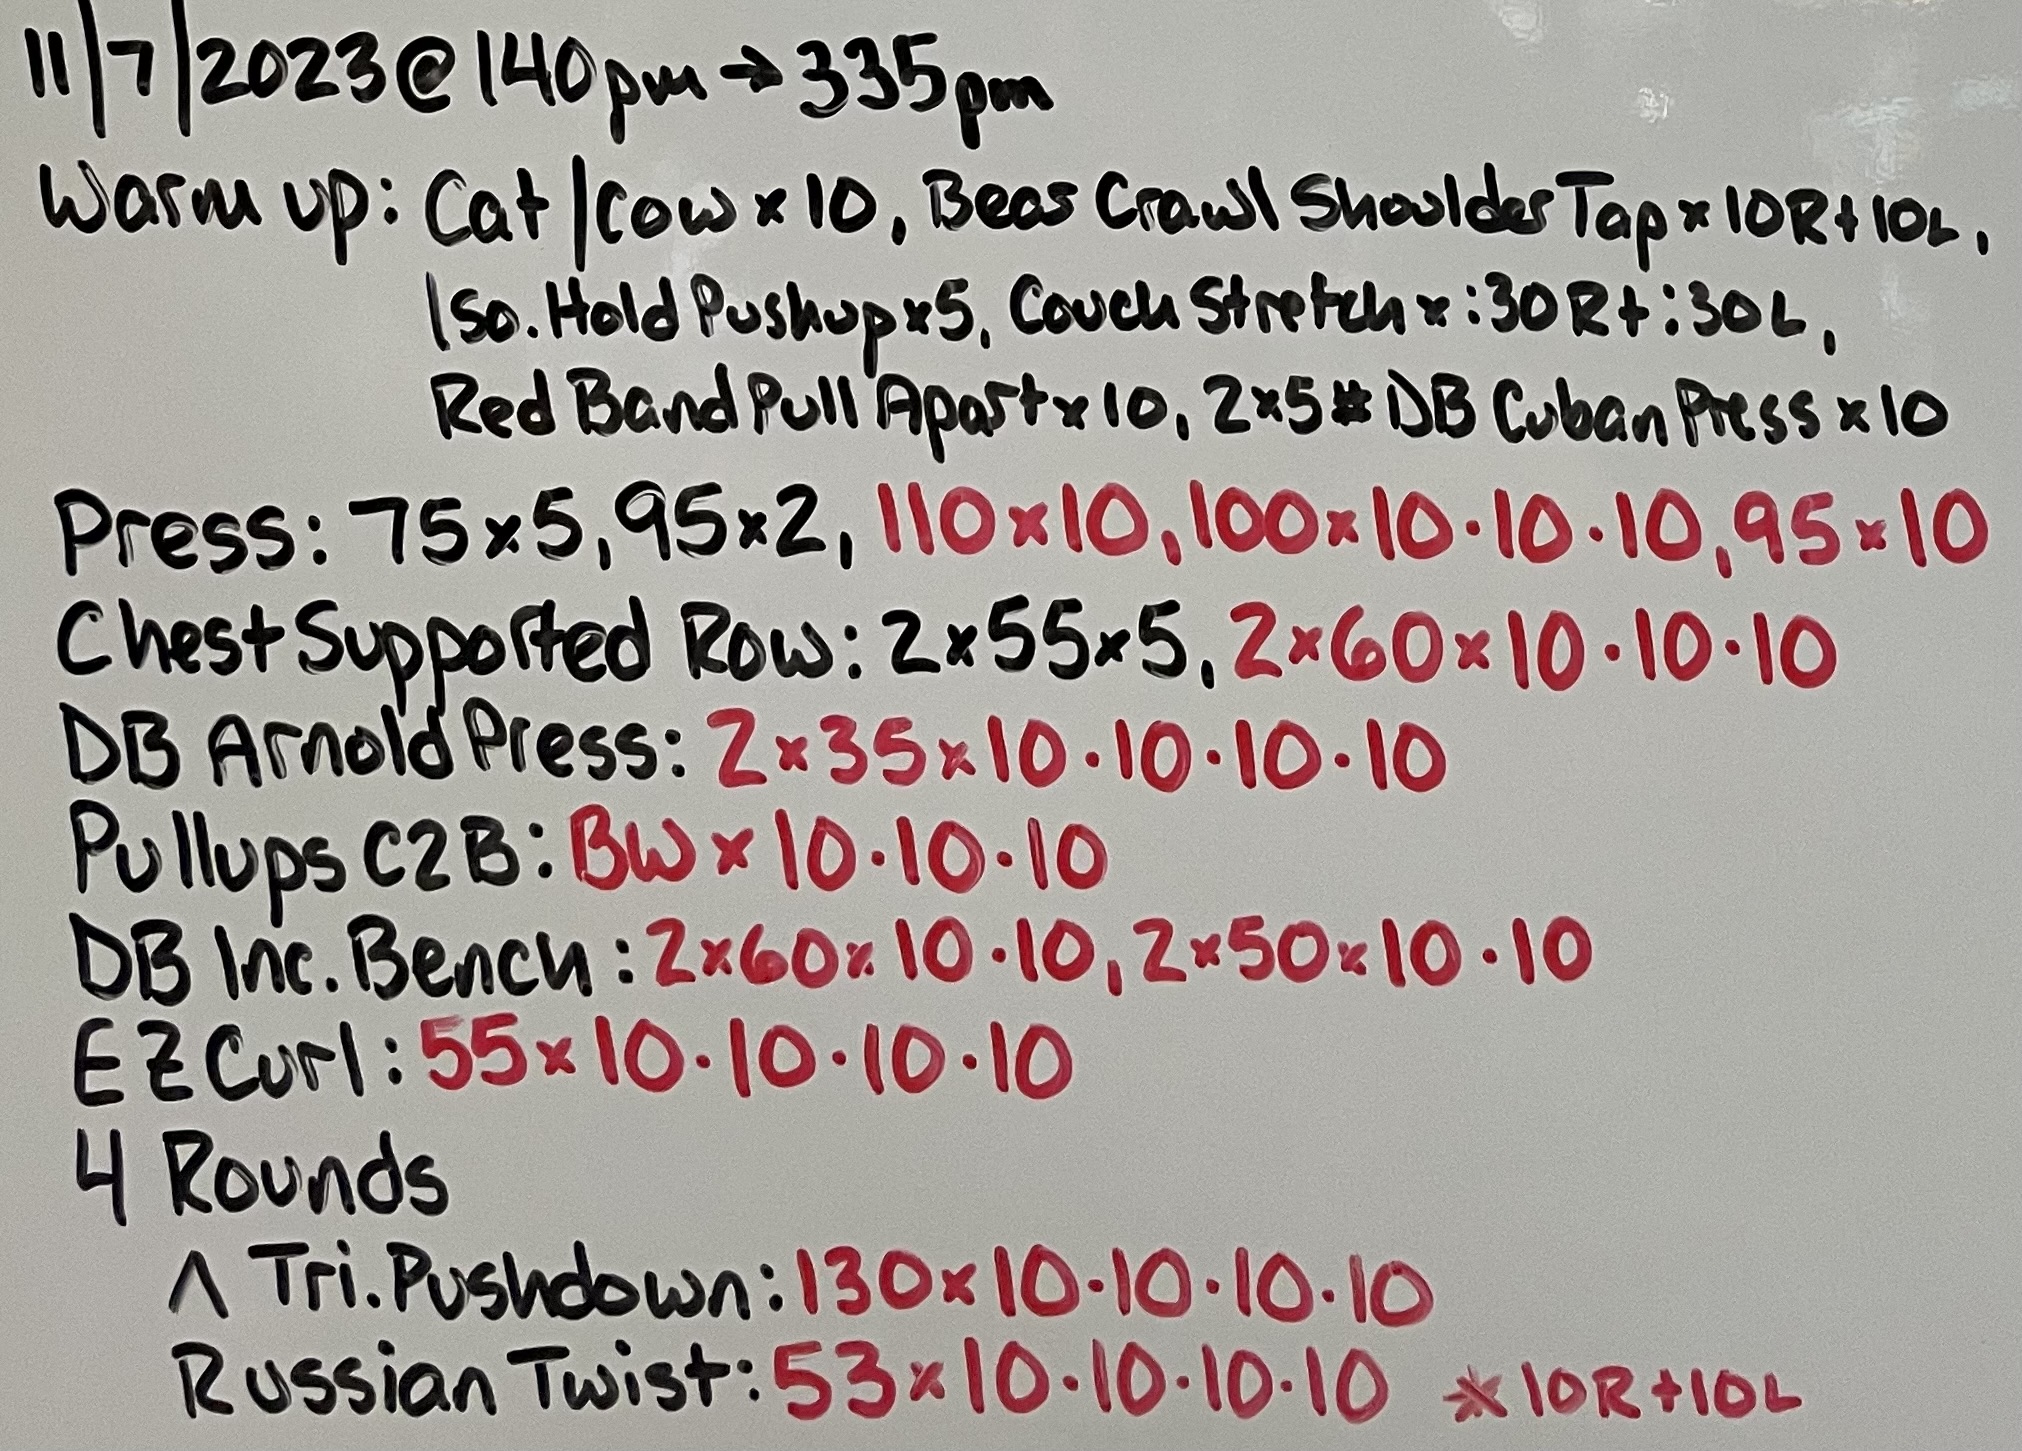 11/7/2023@140pm→335pm
Warm up: Cat/Cow x 10, Bear Crawl Shoulder Tap x 10R+10L,
Iso. Hold Pushup x5, Couch Stretch x :30R+:30L,
Red Band Pull Apart x 10, 2x5# DB Cuban Press x 10
Press: 75x5, 95x2, 110x10, 100x10·10·10, 95x10
Chest Supported Row: 2x55x5, 2x60x10·10·10
DB Arnold Press: 2x35x10·10·10·10
Pullups C2B: BW x 10·10·10
DB Inc. Bench: 2x60x10·10, 2x50x10·10
EZ Curl: 55x10·10·10·10
4 Rounds
Λ Tri. Pushdown: 130x10·10·10·10
Russian Twist: 53x10·10·10·10 *10R+10L